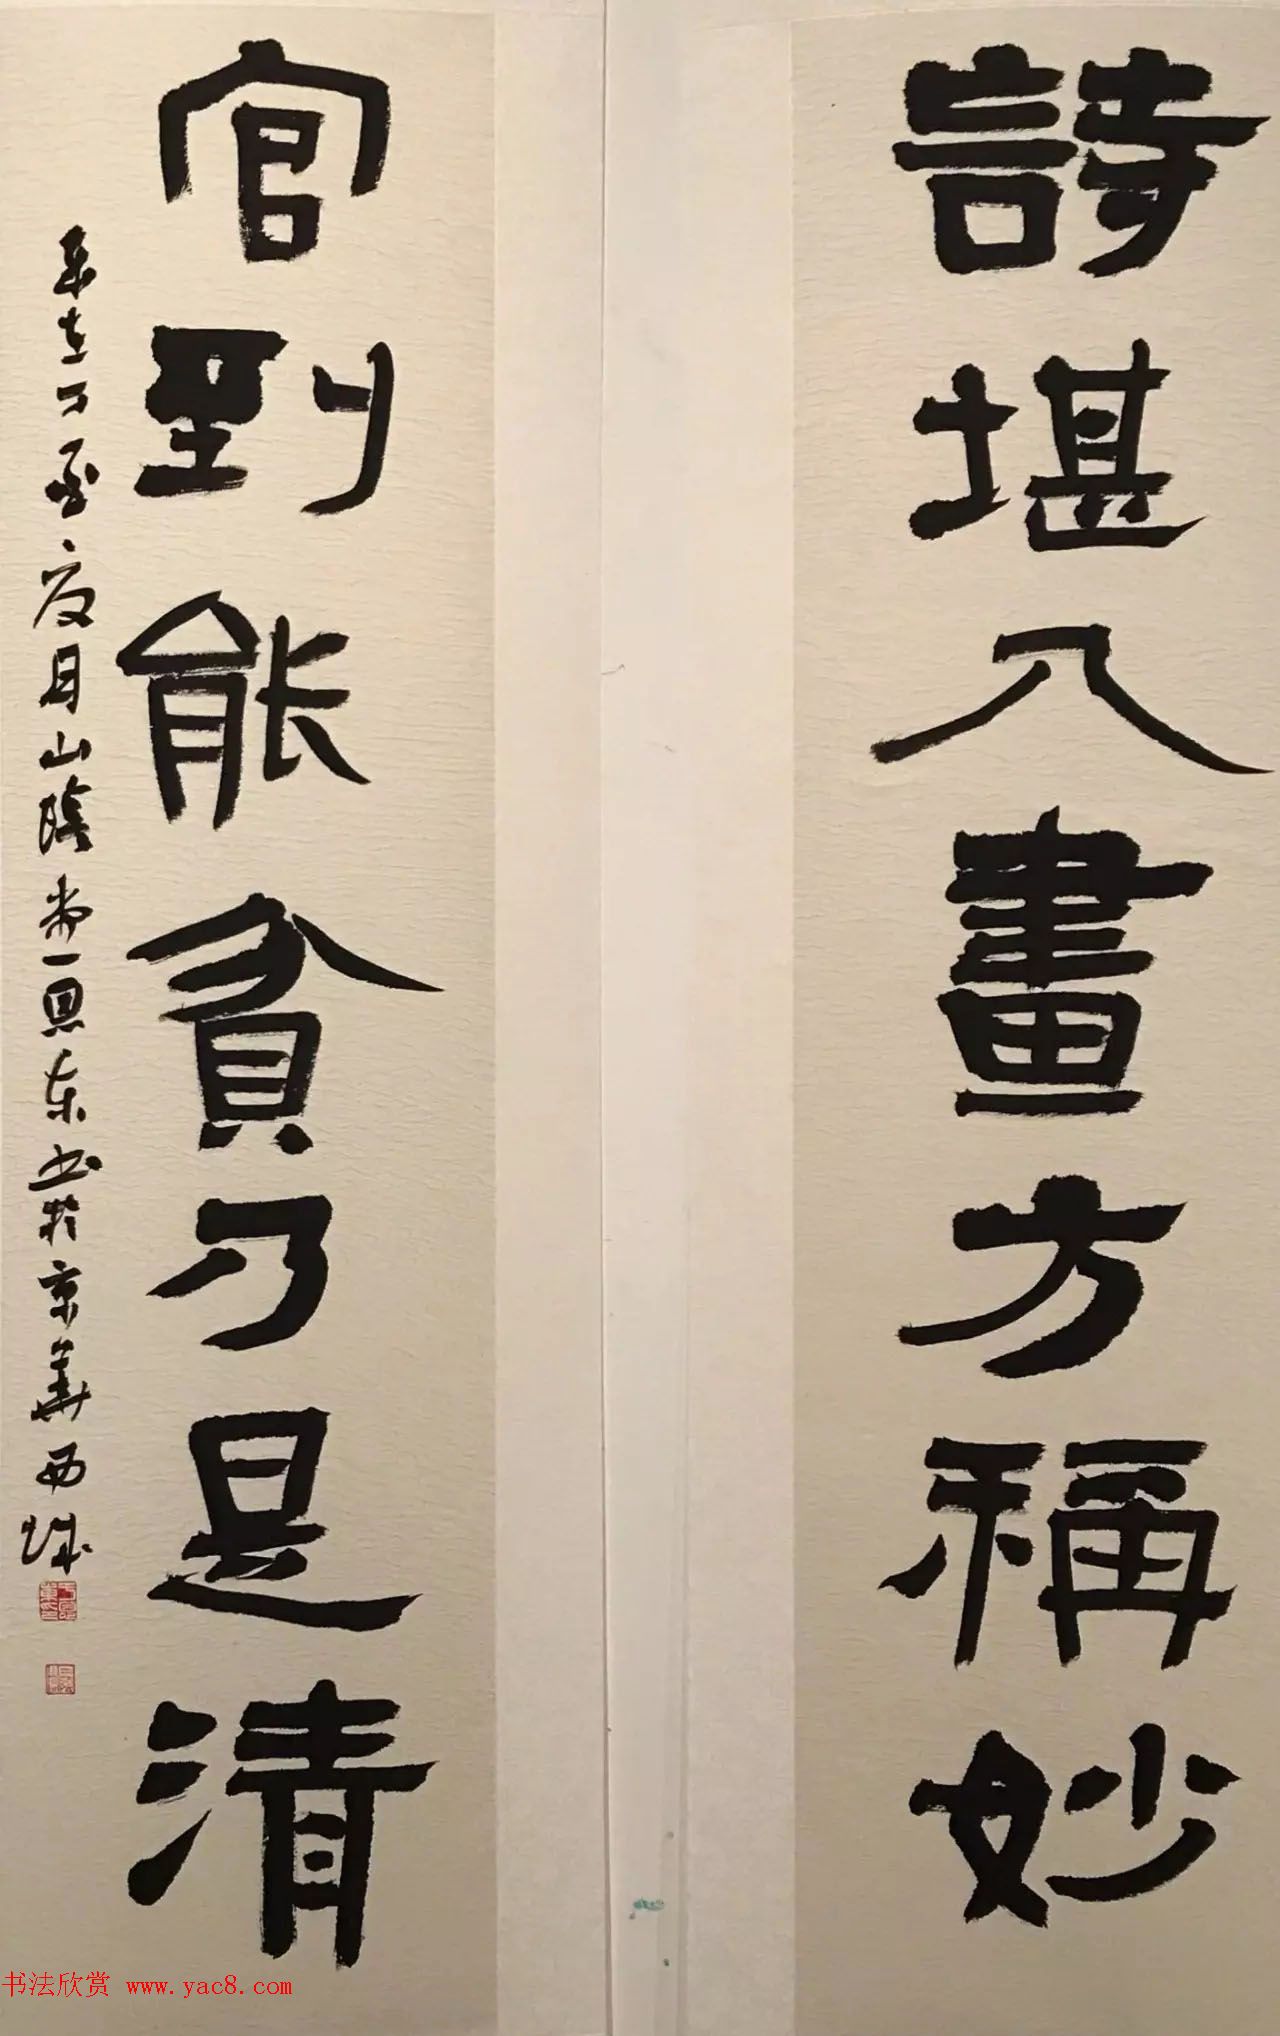 詩堪入畫方稱妙
官到能貧乃是清
月山陰一恩东书於京華西城
书法欣赏 www.yac8.com